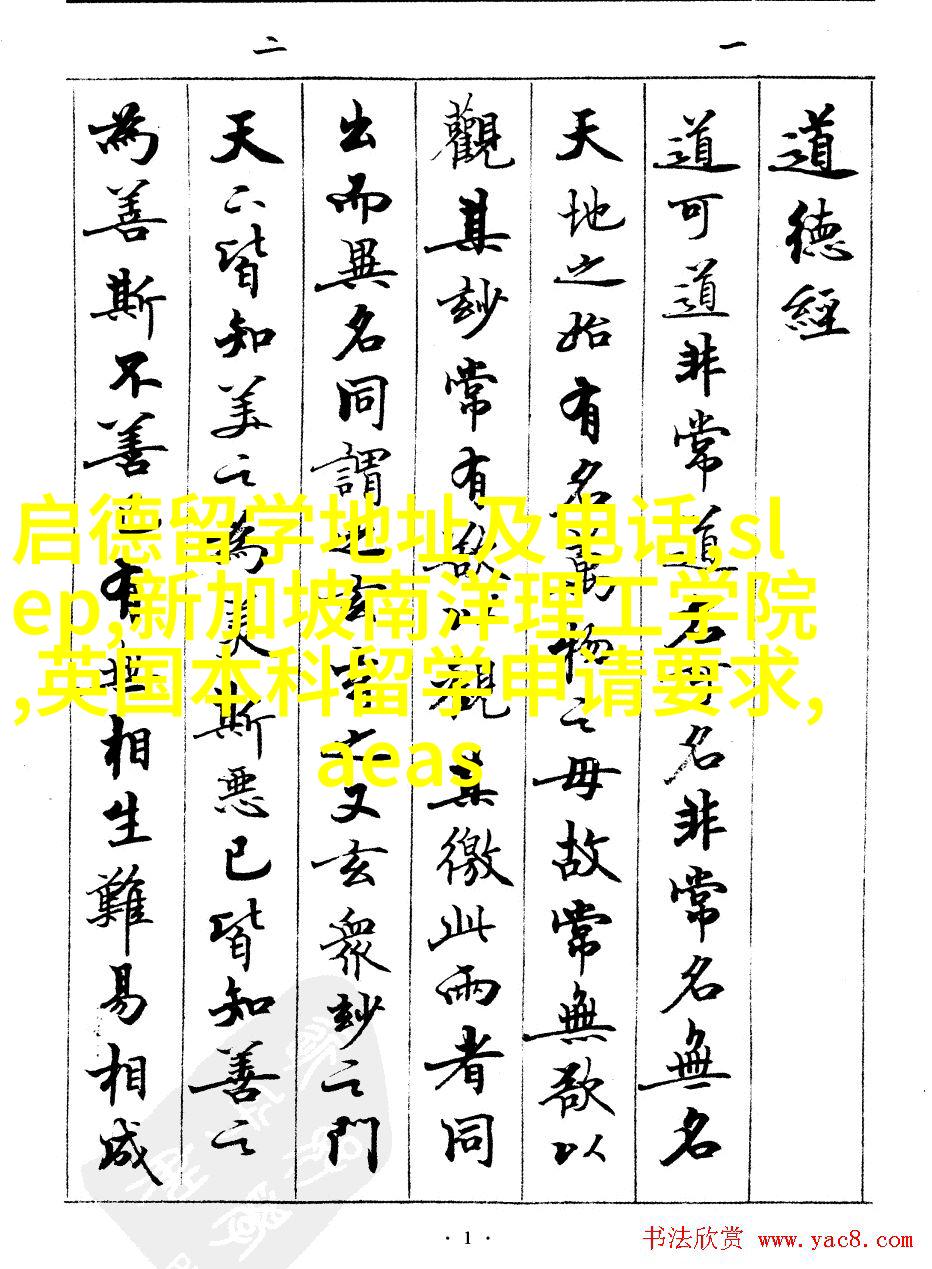 一
二
道德經
道可道非常道名可名非常名無名
天地之始有名萬物之母故常無欲以
觀其玅常有欲以觀其徼此兩者同
出而異名同謂之玄玄之又玄眾玅之門
天下皆知美之為美斯惡已皆知善之
為善斯不善已有無相生難易相成
启德留学地址及电话,sl
ep,新加坡南洋理工学院
,英国本科留学申请要求,
aeas
· 1 ·
书法欣赏 www.yac8.com